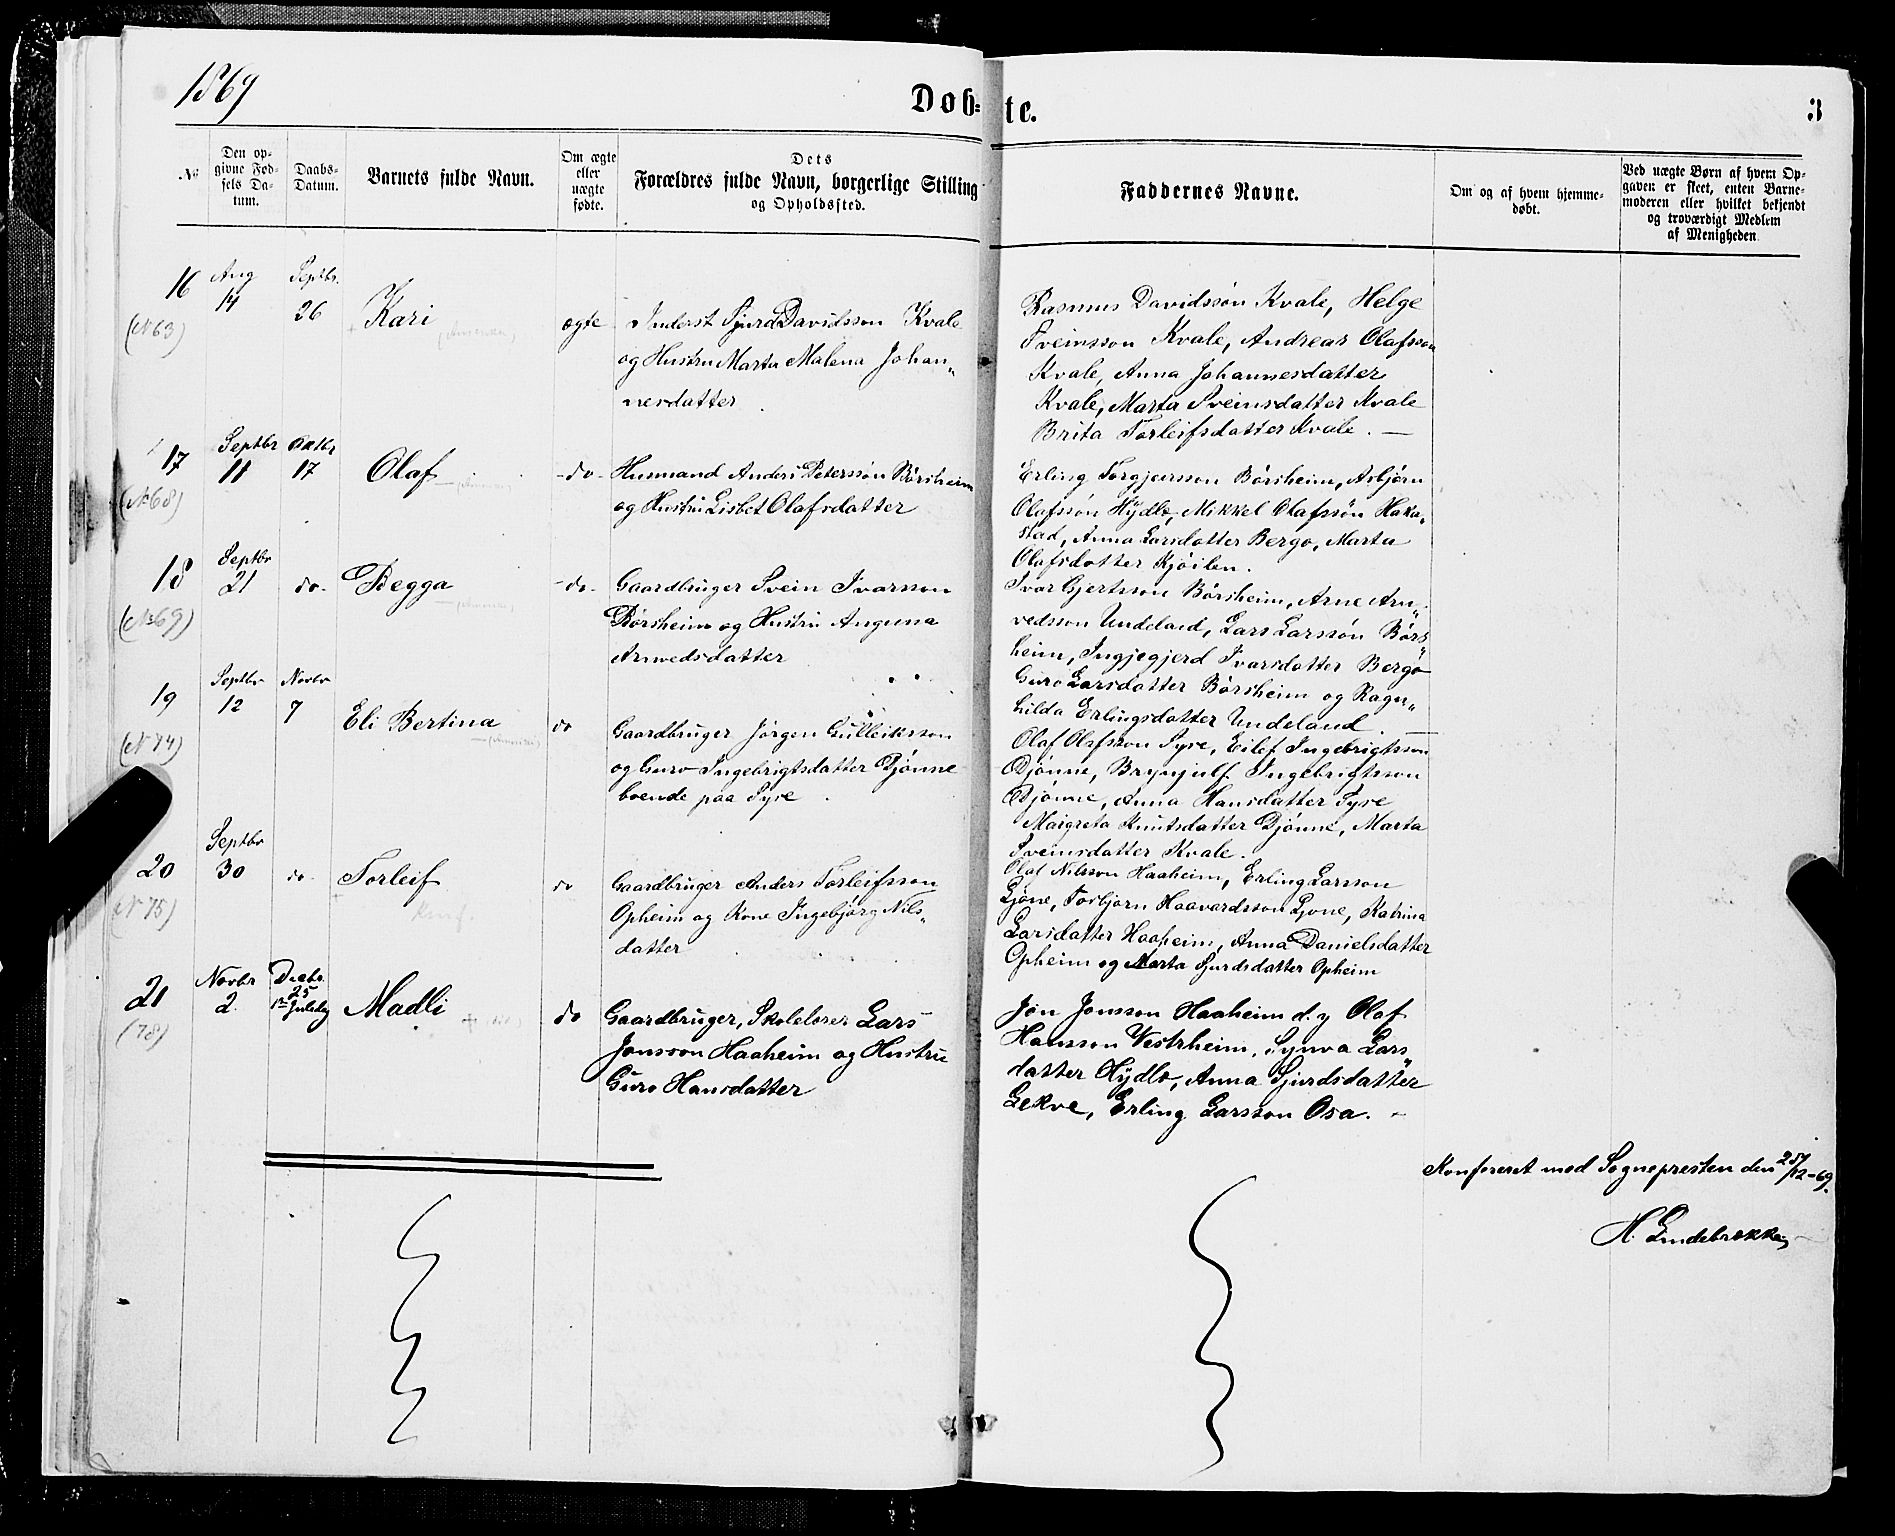 1869
Døb=te.
3
No
Den op-
givne Fød-
sels Da-
tum.
Daabs-
Datum.
Barnets fulde Navn.
Om ægte
eller
uægte
fødte.
Dets
Forældres fulde Navn, borgerlige Stilling
og Opholdssted.
Faddernes Navne.
Om og af hvem hjemme-
døbt.
Ved uægte Børn af hvem Op-
gaven er skeet, enten Barne-
moderen eller hvilket bekjendt
og troværdigt Medlem
af Menigheden
16
(No 63)
Aug
14
Septbr.
26
Kari
ægte
Inderst Sjurd Davidsson Kvale
og Hustru Marta Malena Johan„
nesdatter
Rasmus Davidssøn Kvale, Helge
Sveinsson Kvale, Andreas Olafsson
Kvale, Anna Johannesdatter
Kvale, Marta Sveinsdatter Kvale
Brita Torleifsdatter Kvale. —
17
(No 68)
Septbr
11
Oktbr
17
Olaf
-do-
Husmand Anders Peterssøn Børsheim
og Hustru Lisbet Olafsdatter
Erling Torgjersson Børsheim, Asbjørn
Olafssøn Hÿdle, Mikkel Olafssøn Haka„
stad, Anna Larsdatter Bergo, Marta
Olafsdatter Kjöilen.
18
(No 69)
Septbr
21
do-
Begga
-do-
Gaardbruger Svein Ivarsson
Børsheim og Hustru Anguna
Arnvedsdatter
Ivar Gjertsson Børsheim, Arne Arn„
vedsson Undeland, Lars Larssøn Børs„
heim, Ingjegjerd Ivarsdatter Bergo
Guro Larsdatter Børsheim og Ragn„
hilda Erlingsdatter Undeland. —
19
(No 74)
Septbr
12
Novbr
7
Eli Bertina
do
Gaardbruger Jørgen Gulleiksson
og Guro Ingebrigtsdatter Djønne
boende paa Syse.
Olaf Olafsson Syse, Eilef Ingebrigtsson
Djønne, Brynjulf Ingebrigtsson
Djønne, Anna Hansdatter Syse
Maigreta Knutsdatter Djønne, Marta
Sveinsdatter Kvale.
20
(No 75)
Septbr
30
do-
Torleif
do
Gaardbruger Anders Torleifsson
Opheim og Kone Ingebjørg Nils„
datter
Olaf Nilsson Haaheim, Erling Larsson
Ljone, Torbjørn Haavardsson Ljone, Katrina
Larsdatter Haaheim, Anna Danielsdatter
Opheim og Marta Sjurdsdatter Opheim
21
(78)
Novbr
2.
Decbr.
25
1ste Juledag
Madli
do
Gaardbruger, Skolelærer Lars
Jonsson Haaheim og Hustru
Guro Hansdatter
Jon Jonsson Haaheim d. y Olaf
Hansson Vestrheim, Synva Lars„
datter Hÿdle, Anna Sjurdsdatter
Lekve, Erling Larsson Osa. -
Konfereret med Sognepresten den 25/12-69.
H. Lindebrække